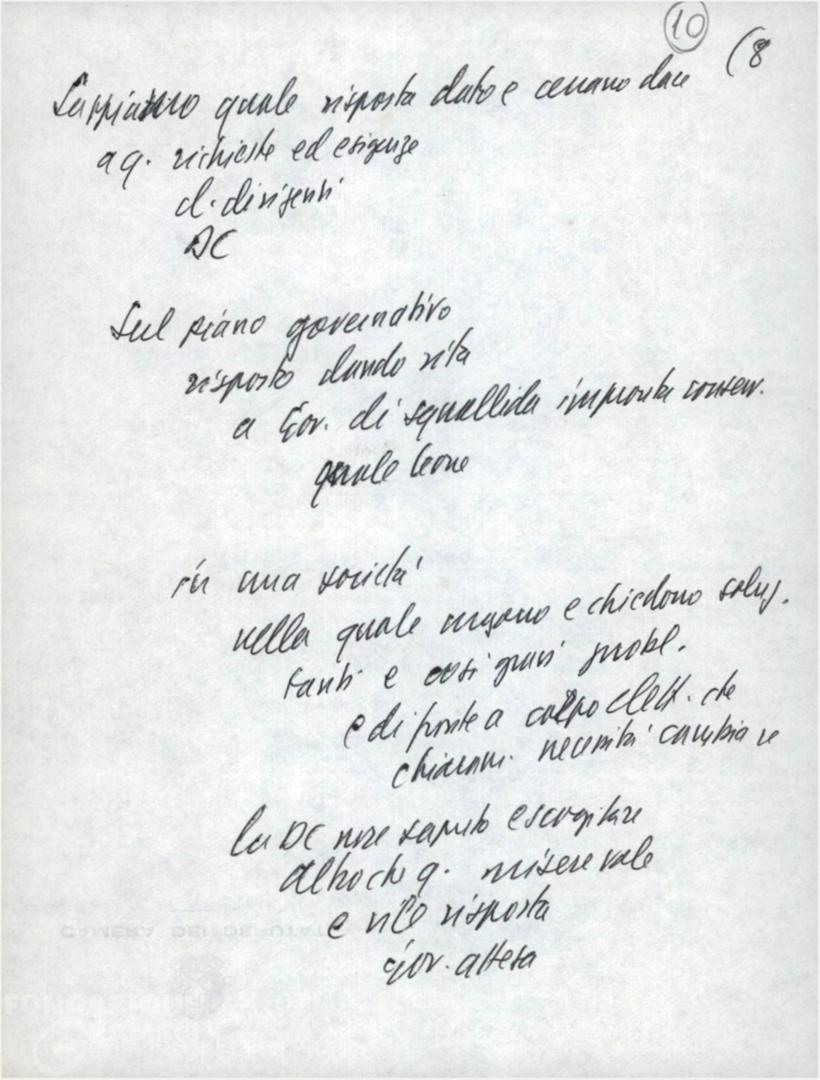 10 (8
Sappiamo quale risposta dato e cercano dare
a q. richieste ed esigenze
d. dirigenti
DC
Sul piano governativo
risposto dando vita
a Gov. di squallida impronta conserv.
quale Leone
in una società
nella quale urgono e chiedono soluz.
tanti e così gravi probl.
e di fronte a corpo elett. che
chiaram. necessità cambiare
la DC non saputo escogitare
altro che q. miserevole
e vile risposta
gov. attesa
CAMERA DEI DEPUTATI
FONDAZIONE